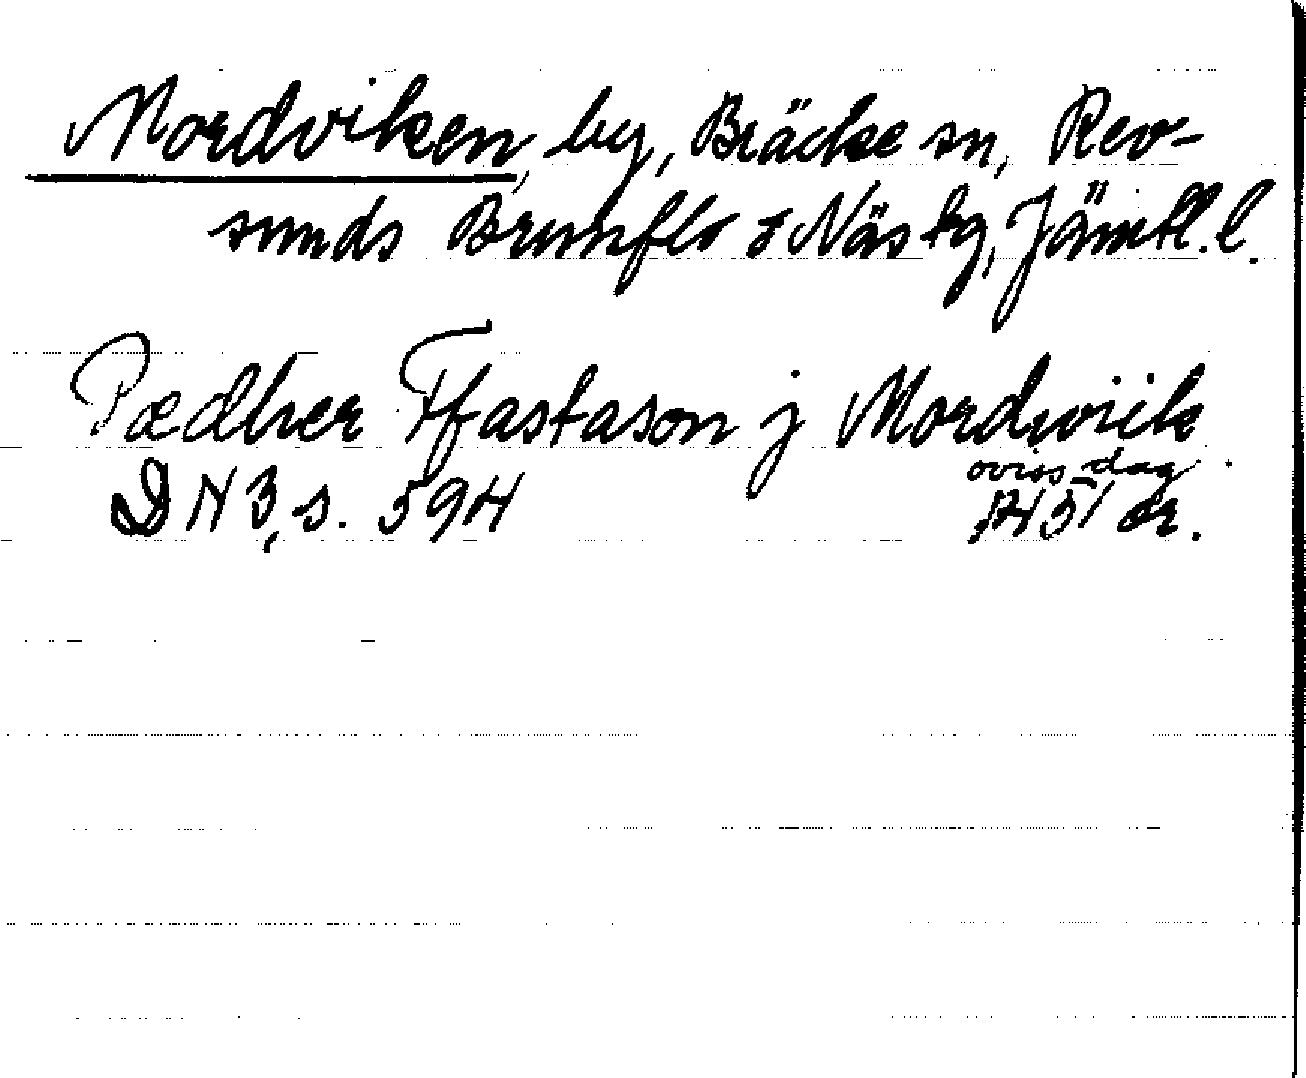 Mordviken, by, Bräcke sn, Rev-
sunds Brunflo o Näs tg, Jämtl. l.
Pædher Ffastason j Mordwiik
oviss dag
DN 3, s. 594 1451 or.